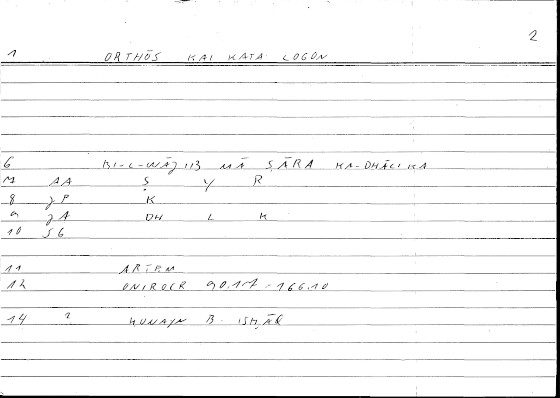 2
1 ORTHŌS KAI KATA LOGON
6 BI-L-WĀǦIB MĀ ṢĀRA KA-DHĀLIKA
M AA Ṣ Y R
8 P K
9 A DH L K
10 SG
11 ARTEM
12 ONIROCR 90.17 - 166.10
14 ? ḤUNAYN B. ISḤĀQ